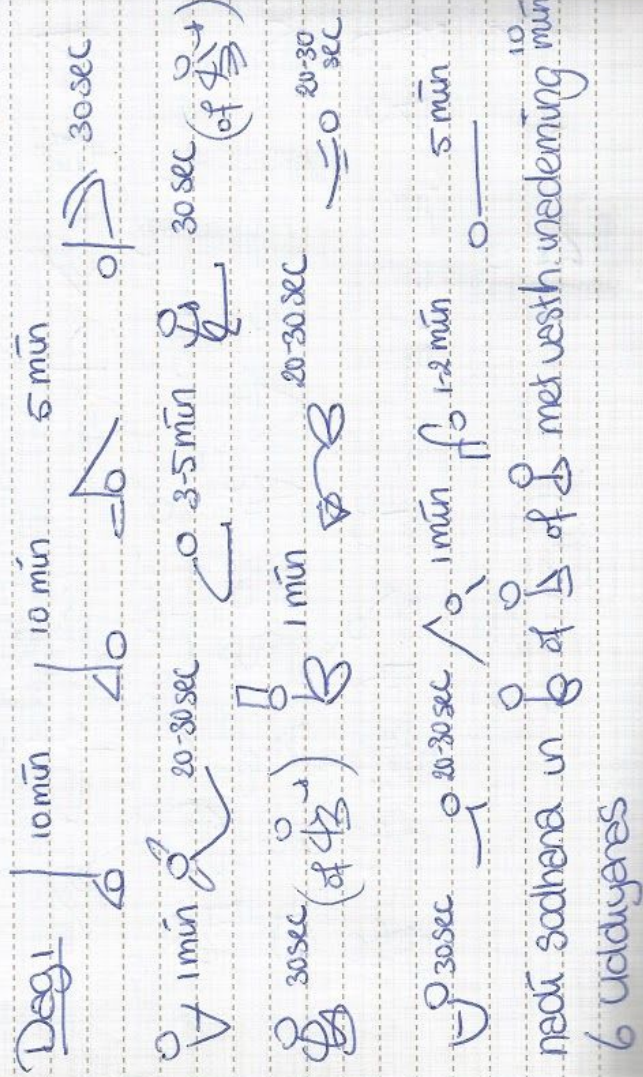 Dag 1 10 min 10 min 5 min 30 sec
1 min 20-30 sec 3-5 min 30 sec (of )
30 sec (of ) 1 min 20-30 sec 20-30 sec
30 sec 20-30 sec 1 min 1-2 min 5 min
nadi sodhana in of of met vasth. inademing 10 min
6 uddiyanas